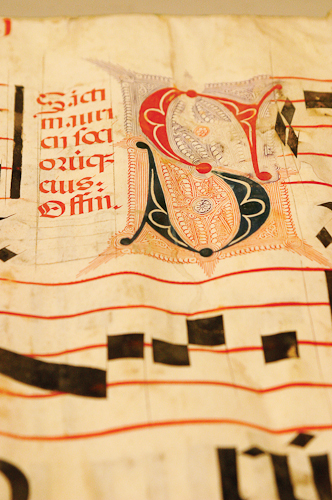 Sācti
mauri
cii soci
orūqꝫ
eius:
Offm.
S